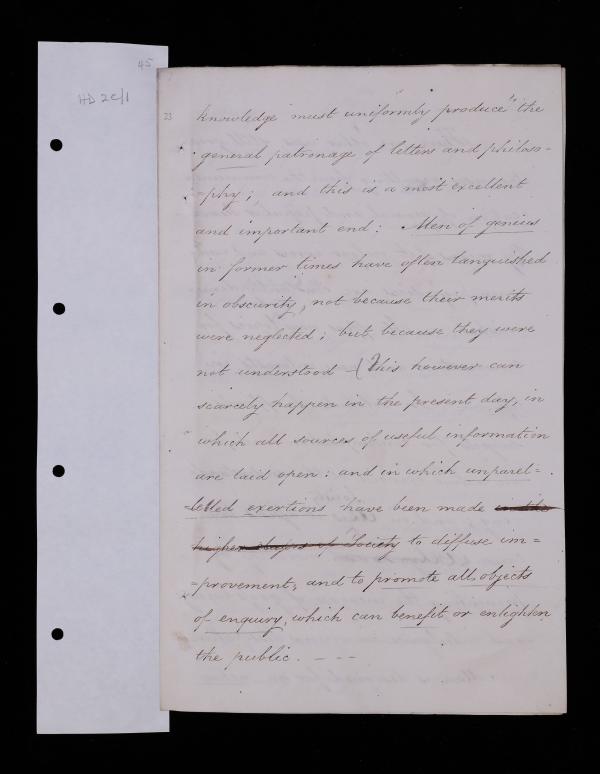 45
HD 2c/1
23
knowledge must uniformly produce the
general patronage of letters and philoso=
=phy; and this is a most excellent
and important end: Men of genius
in former times have often languished
in obscurity, not because their merits
were neglected; but because they were
not understood – This however can
scarcely happen in the present day, in
which all sources of useful information
are laid open: and in which unparel=
=lelled exertions have been made in the
higher classes of Society to diffuse im=
=provement, and to promote all objects
of enquiry, which can benefit or enlighten
the public. – – –